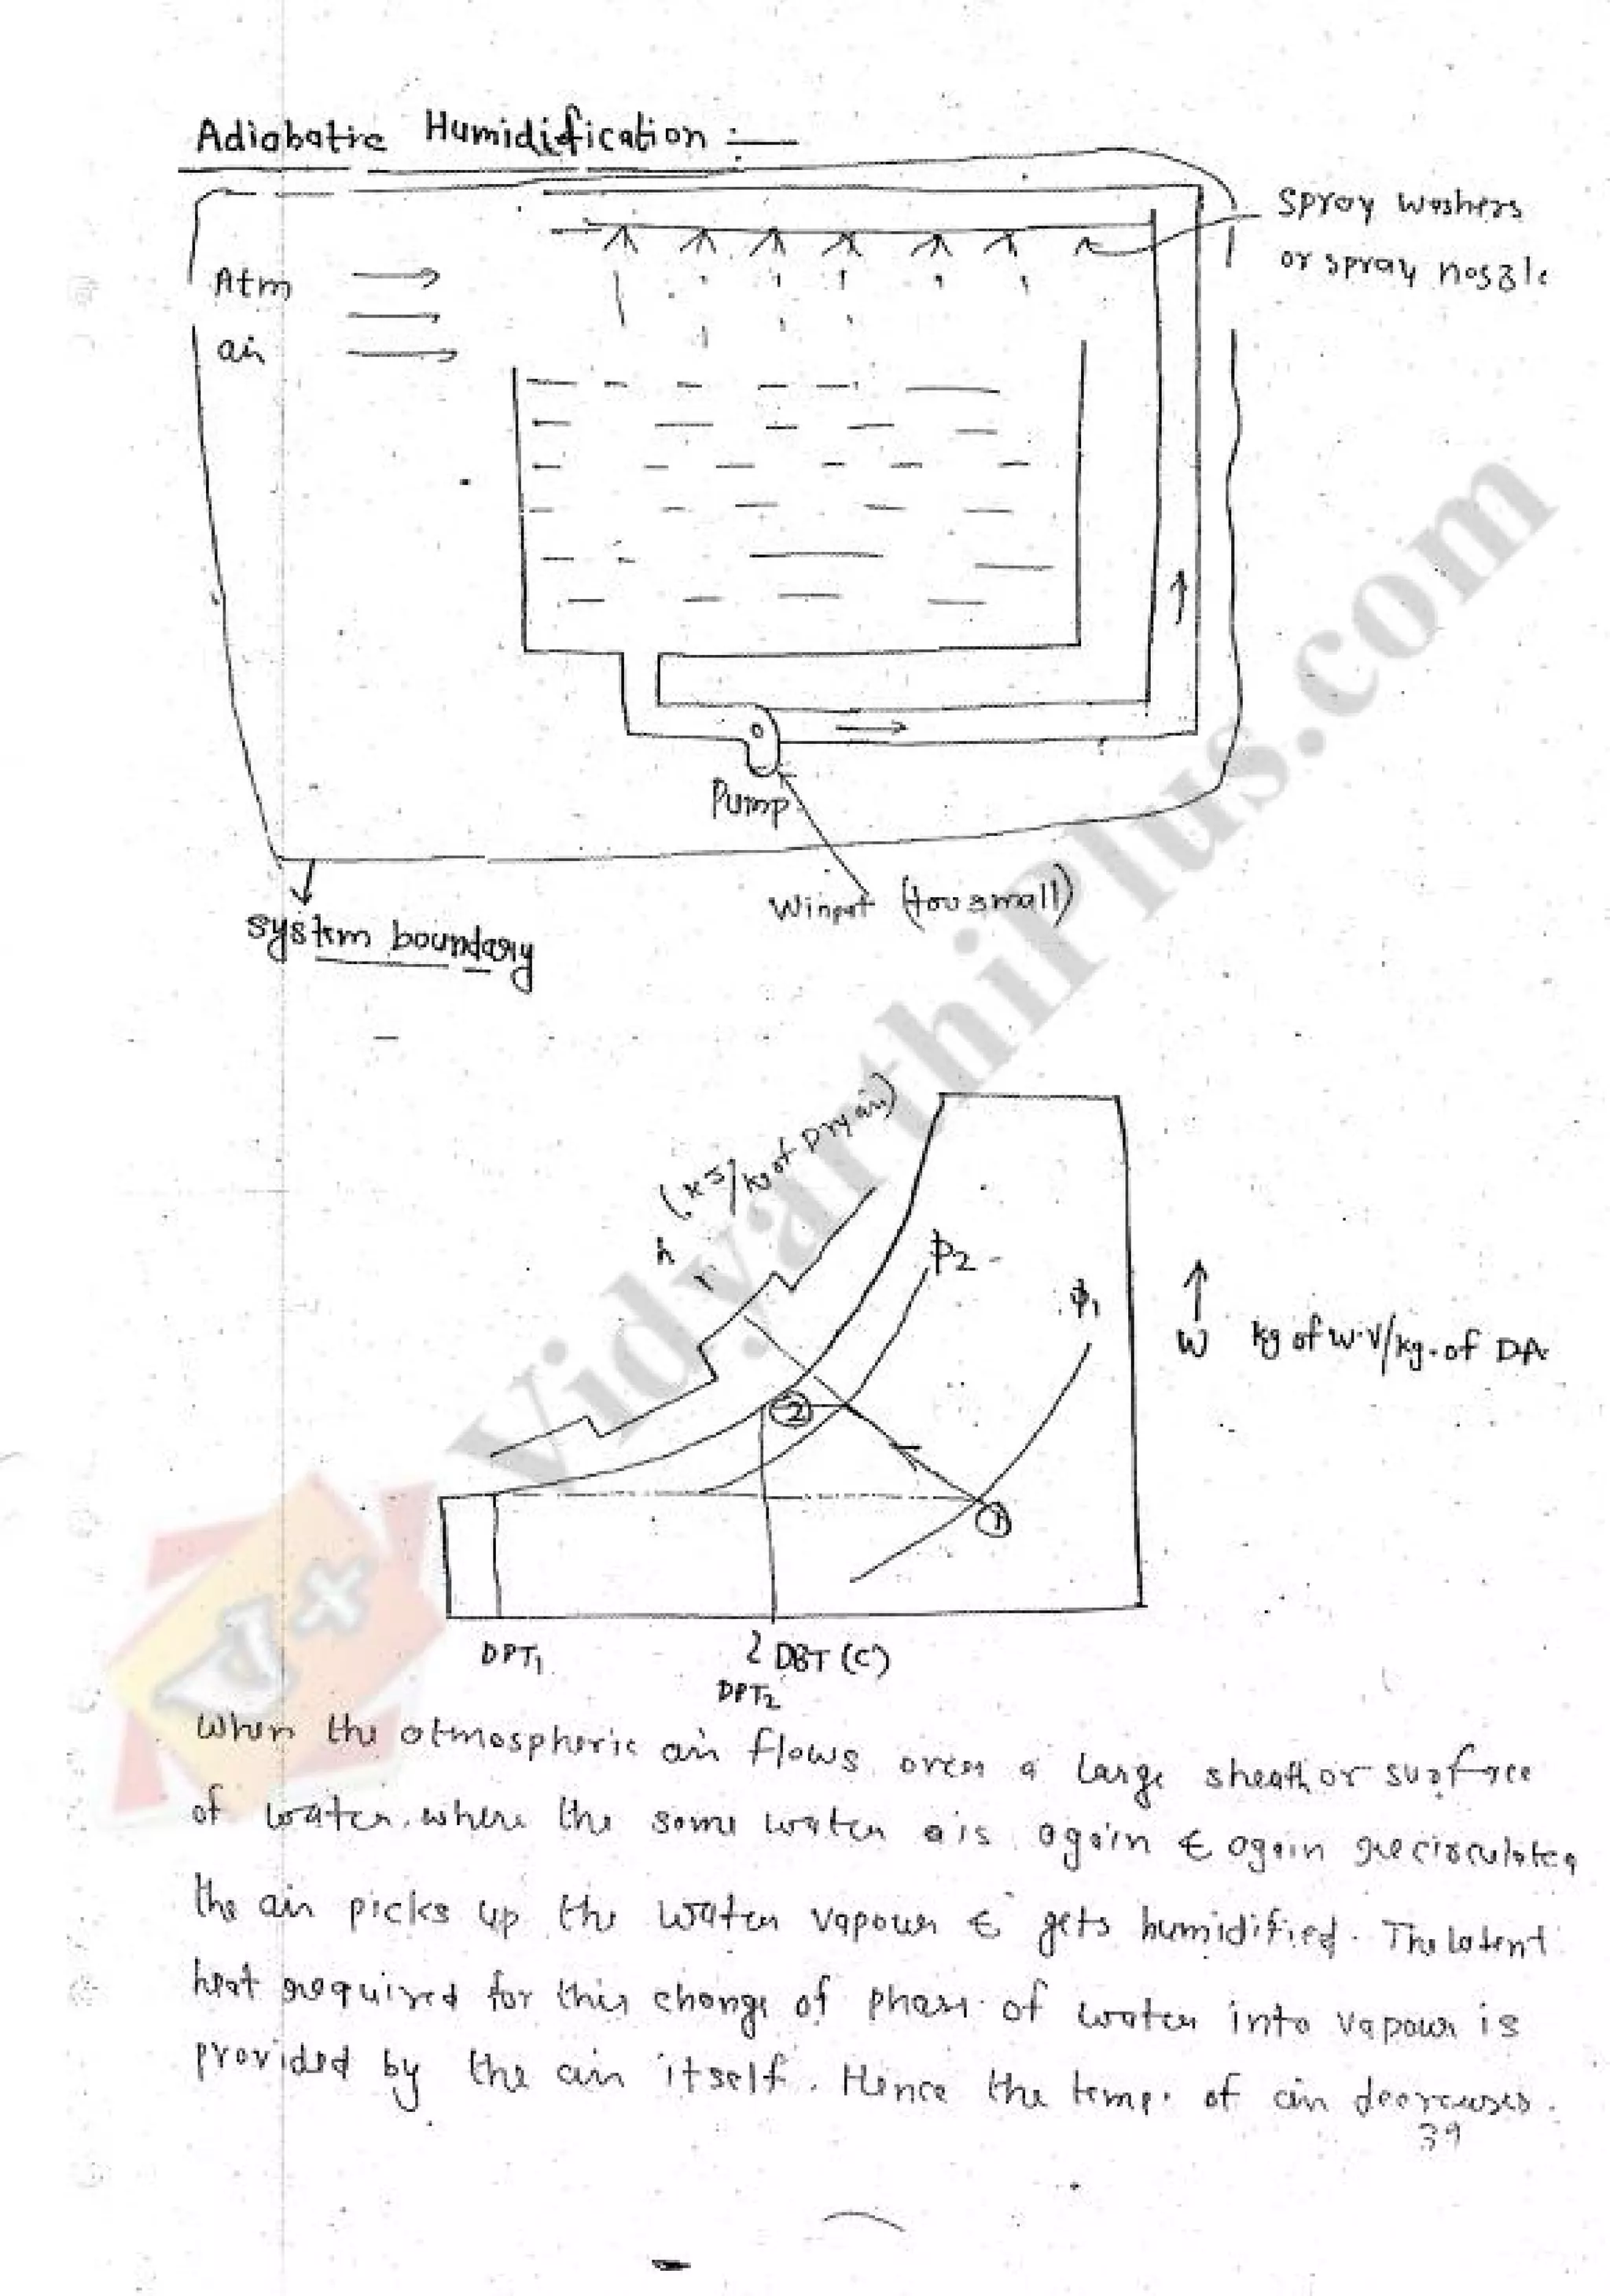 Adiabatic Humidification :—
Spray washers
or spray nozzle
Atm
air
Pump
Winput (too small)
system boundary
h (KJ/kg of Dry air)
ϕ2
ϕ1
W kg of w.v/kg. of DA
2
1
DPT1
DBT (C)
DPT2
When the atmospheric air flows over a large sheath or surface
of water. where the same water is again & again recirculated
the air picks up the water vapour & gets humidified. The latent
heat required for this change of phase of water into vapour is
provided by the air itself. Hence the temp. of air decreases.
39
VidyarthiPlus.com
V+